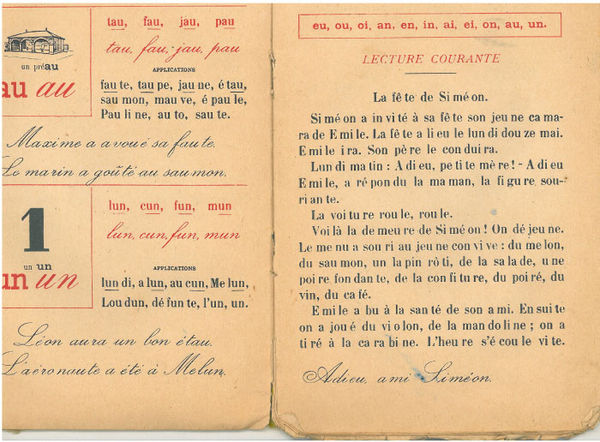 tau, fau, jau, pau
tau, fau, jau, pau
un préau
au au
APPLICATIONS
fau te, tau pe, jau ne, é tau,
sau mon, mau ve, é pau le,
Pau li ne, au to, sau te.
Maxime a avoué sa faute.
Le marin a goûté au saumon.
lun, cun, fun, mun
lun, cun, fun, mun
1
un un
un un
APPLICATIONS
lun di, a lun, au cun, Me lun,
Lou dun, dé fun te, l'un, un.
Léon aura un bon étau.
L'aéronaute a été à Melun.
eu, ou, oi, an, en, in, ai, ei, on, au, un.
LECTURE COURANTE
La fê te de Si mé on.
Si mé on a in vi té à sa fête son jeu ne ca ma-
ra de E mi le. La fê te a li eu le lun di dou ze mai.
E mi le i ra. Son pè re le con dui ra.
Lun di ma tin : A di eu, pe ti te mè re ! - A di eu
E mi le, a ré pon du la ma man, la fi gu re sou-
ri an te.
La voi tu re rou le, rou le.
Voi là la de meu re de Si mé on ! On dé jeu ne.
Le me nu a sou ri au jeu ne con vi ve : du me lon,
du sau mon, un la pin rô ti, de la sa la de, u ne
poi re fon dan te, de la con fi tu re, du poi ré, du
vin, du ca fé.
E mi le a bu à la san té de son a mi. En sui te
on a jou é du vi o lon, de la man do li ne ; on a
ti ré à la ca ra bi ne. L'heu re s'é cou le vi te.
Adieu, ami Siméon.